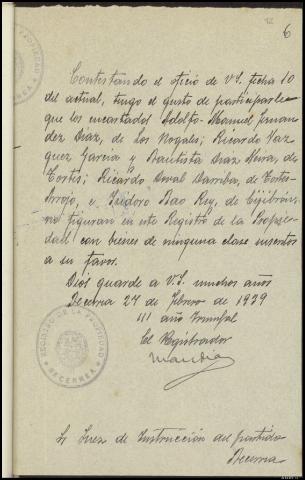 6
Contestando el oficio de V.S. fecha 10
del actual, tengo el gusto de participarle
que los encartados Adolfo-Manuel Fernan
dez Díaz, de Los Nogales; Ricardo Vaz
quez García y Bautista Díaz Neira, de
Cortés; Ricardo Doval Darriba, de Torés-
e, Isidoro Bao Rey, de
no figuran en este Registro de la Propie-
dad con bienes de ninguna clase inscritos
a su favor.
Dios guarde a V.S. muchos años
Becerrea 27 de Febrero de 1939
III año Triunfal
El Registrador
REGISTRO DE LA PROPIEDAD
BECERREA
Sr Juez de Instrucción del partido
Becerrea